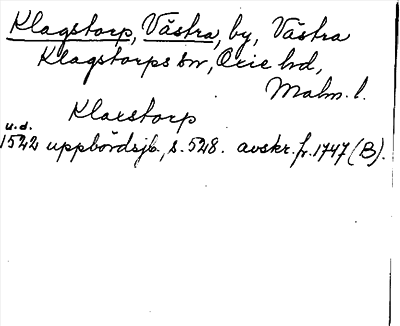 Klagstorp, Västra, by, Västra
Klagstorps sn, Oxie hd,
Malm. l.
Klaxstorp
u.d.
1522 uppbördsjb., s. 528. avskr. fr. 1747 (B).